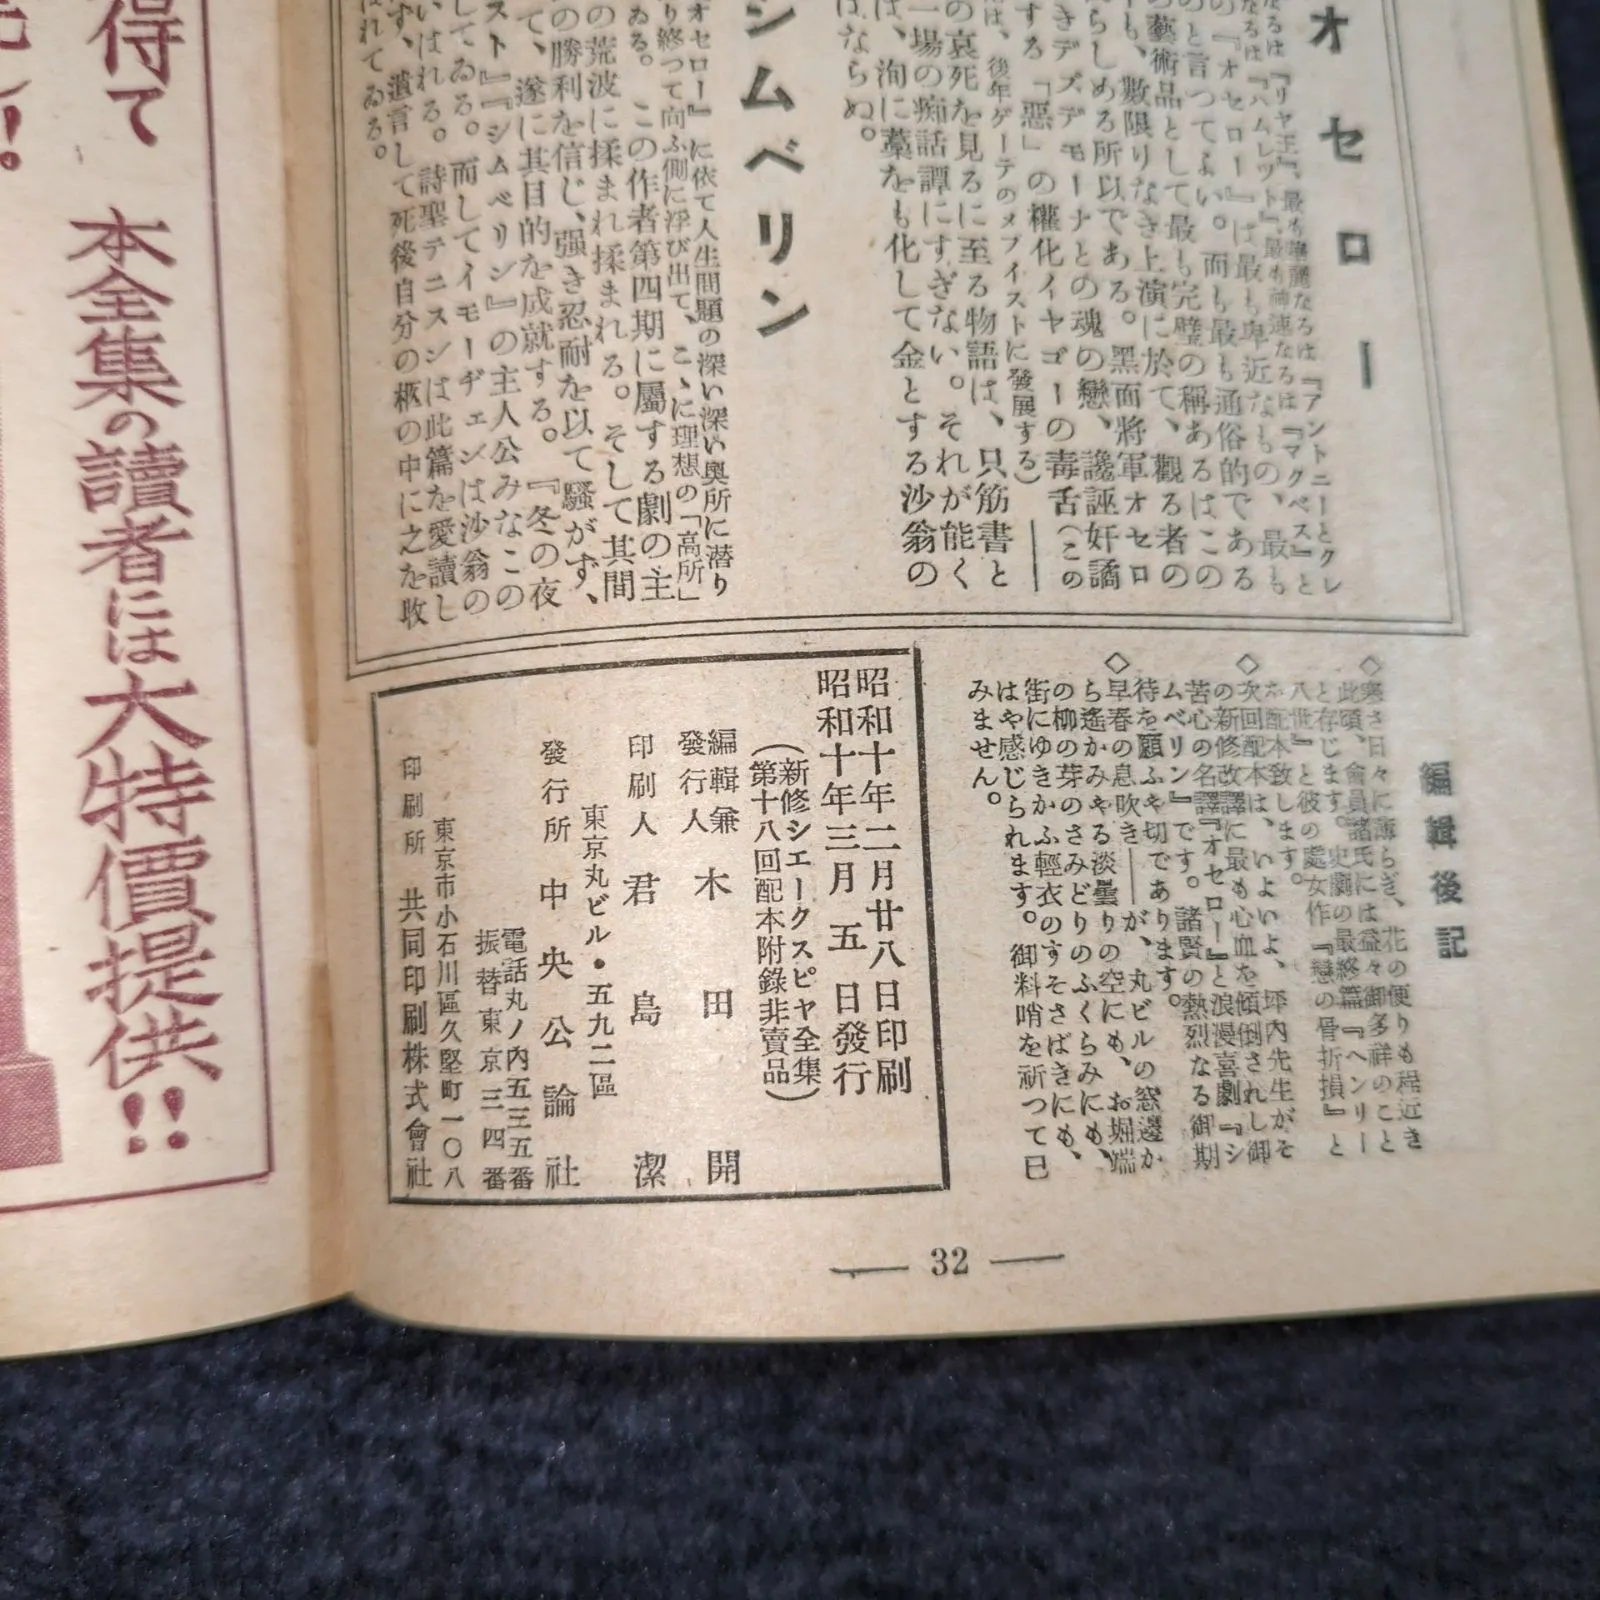 オセロー
なるは『リヤ王』、最も華麗なるは『アントニーとクレ
なるは『ハムレット』、最も神速なるは『マクベス』と
の『オセロー』は最も卑近なもの、最も
のと言つてよい。而も最も通俗的である
藝術品として最も完璧の稱あるはこの
も、數限りなき上演に於て、觀る者の
らしめる所以である。黑面將軍オセロ
きデズデモーナとの魂の戀、讒誣奸譎
する「惡」の權化イヤゴーの毒舌(この
は、後年ゲーテのメフイストに發展する)――
の哀死を見るに至る物語は、只筋書と
一場の痴話譚にすぎない。それが能く
は、洵に藁をも化して金とする沙翁の
はならぬ。
シムベリン
オセロー』に依て人生問題の深い深い奥所に潜り
り終つて向ふ側に浮び出て、こゝに理想の「高所」
ゐる。この作者第四期に屬する劇の主
の荒波に揉まれ揉まれる。そして其間
の勝利を信じ、强き忍耐を以て騷がず、
て、遂に其目的を成就する。『冬の夜
スト』『シムベリン』の主人公みなこの
してゐる。而してイモーヂェンは沙翁の
いはれる。詩聖テニスンは此篇を愛讀し
ず、遺言して死後自分の柩の中に之を收
れてゐる。
編輯後記
◇寒さ日々に薄らぎ、花の便りも程近き
此頃、會員諸氏には益々御多祥のこと
と存じます。史劇の最終篇『ヘンリー
八世』と彼の處女作『戀の骨折損』と
を配本致します。
◇次回配本は、いよいよ、坪内先生がそ
の新修改譯に最も心血を傾倒されし御
苦心の名譯『オセロー』と浪漫喜劇『シ
ムベリン』です。諸賢の熱烈なる御期
待を願ふや切であります。
◇早春の息吹き――が、丸ビルの窓邊か
ら遙かみやる淡曇りの空にも、お堀端
の柳の芽のさみどりのふくらみにも、
街にゆきかふ輕衣のすそさばきにも、
はや感じられます。御料峭を祈つて已
みません。
昭和十年二月廿八日印刷
昭和十年三月五日發行
(新修シエークスピヤ全集)
(第十八回配本附錄非賣品)
編輯兼
發行人 木田開
印刷人 君島潔
東京丸ビル・五九二區
發行所 中央公論社
電話丸ノ内五三五番
振替東京三四番
東京市小石川區久堅町一〇八
印刷所 共同印刷株式會社
― 32 ―
得て
本全集の讀者には大特價提供!!